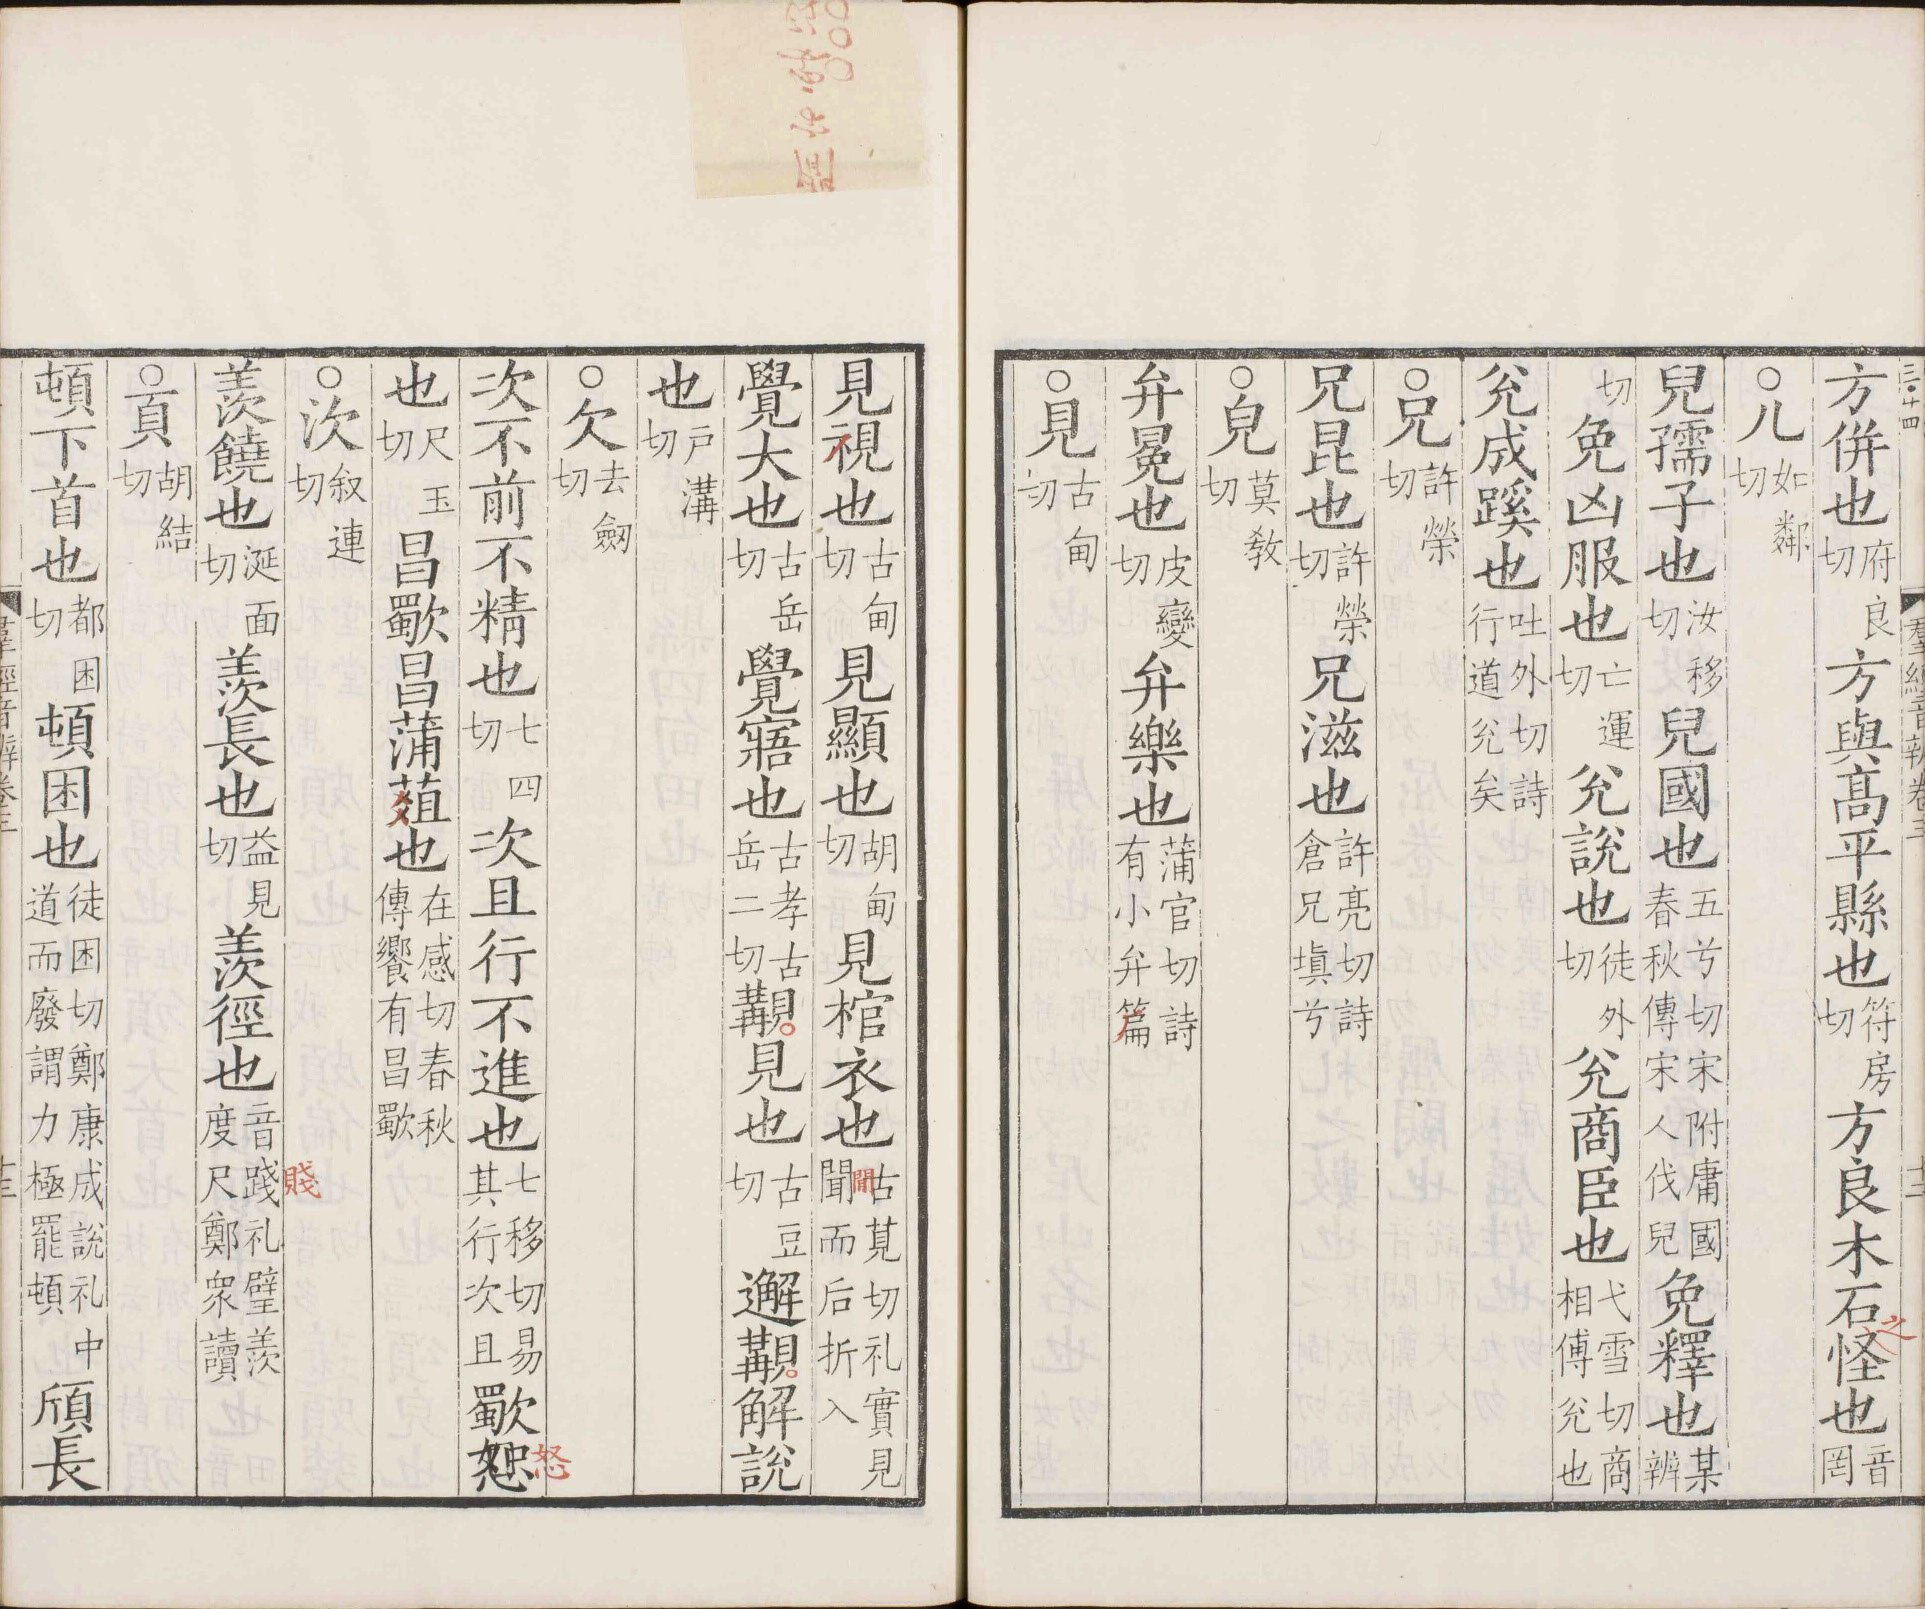 方併也府良切方與髙平縣也符房切方良木石怪也音罔
○儿如鄰切
兒孺子也汝移切兒國也五兮切宋附庸國春秋傳宋人伐兒免釋也某辨
切免凶服也亡運切兊說也徒外切兊商臣也弋雪切商相傅兊也
兊成蹊也吐外切詩行道兊矣
○兄許榮切
兄昆也許榮切兄滋也許亮切詩倉兄塡兮
○皃莫教切
弁冕也皮變切弁樂也蒲官切詩有小弁篇
○見古甸切
見視也古甸切見顯也胡甸切見棺衣也古莧切礼實見聞而后折入
間
覺大也古岳切覺寤也古孝古岳二切覯見也古豆切邂覯解說
也戸溝切
○欠去劒切
次不前不精也七四切次且行不進也七移切易其行次且歜恕
怒
也尺玉切昌歜昌蒲葅也在感切春秋傳饗有昌歜
○㳄叙連切
羡饒也涎面切羡長也益見切羡徑也音踐礼璧羡度尺鄭衆讀
賤
○頁胡結切
頓下首也都困切頓困也徒困切鄭康成說礼中道而廢謂力極罷頓頎長
羣經音辨卷三
十三
之
三十四